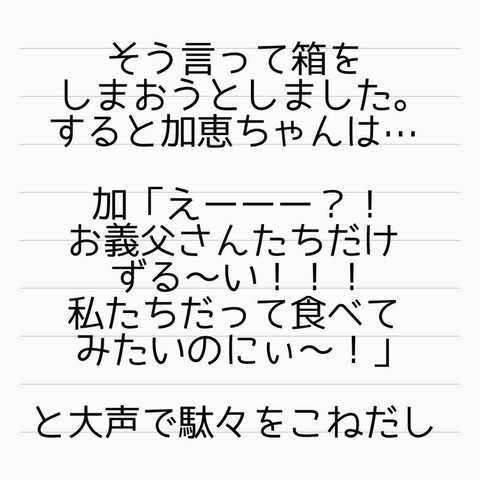 そう言って箱を
しまおうとしました。
すると加恵ちゃんは…
加「えーーー？！
お義父さんたちだけ
ずる～い！！！
私たちだって食べて
みたいのにぃ～！」
と大声で駄々をこねだし